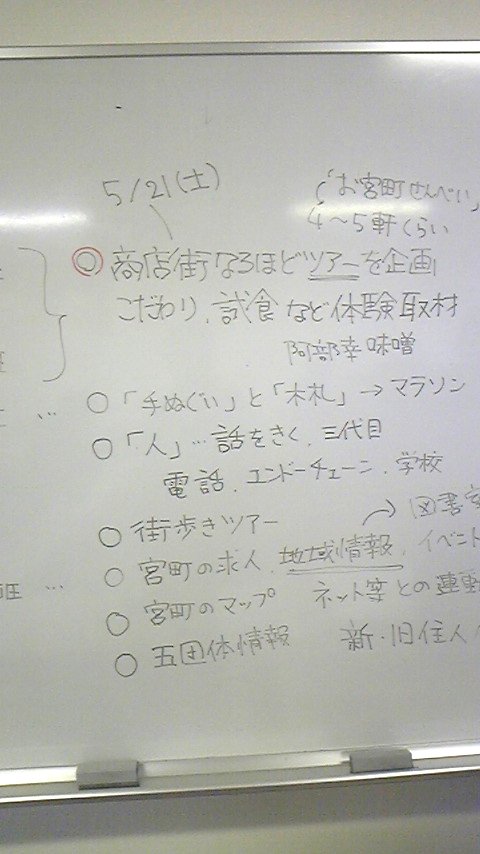 5/21(土)
「お宮町せんべい」
4〜5軒くらい
◎ 商店街なるほどツアーを企画
こだわり、試食など体験取材
阿部幸味噌
… ○ 「手ぬぐい」と「木札」→マラソン
○ 「人」…話をきく、三代目
電話、エンドーチェーン、学校
○ 街歩きツアー
図書
班 … ○ 宮町の求人、地域情報、イベント
○ 宮町のマップ ネット等との連動
○ 五団体情報 新・旧住人